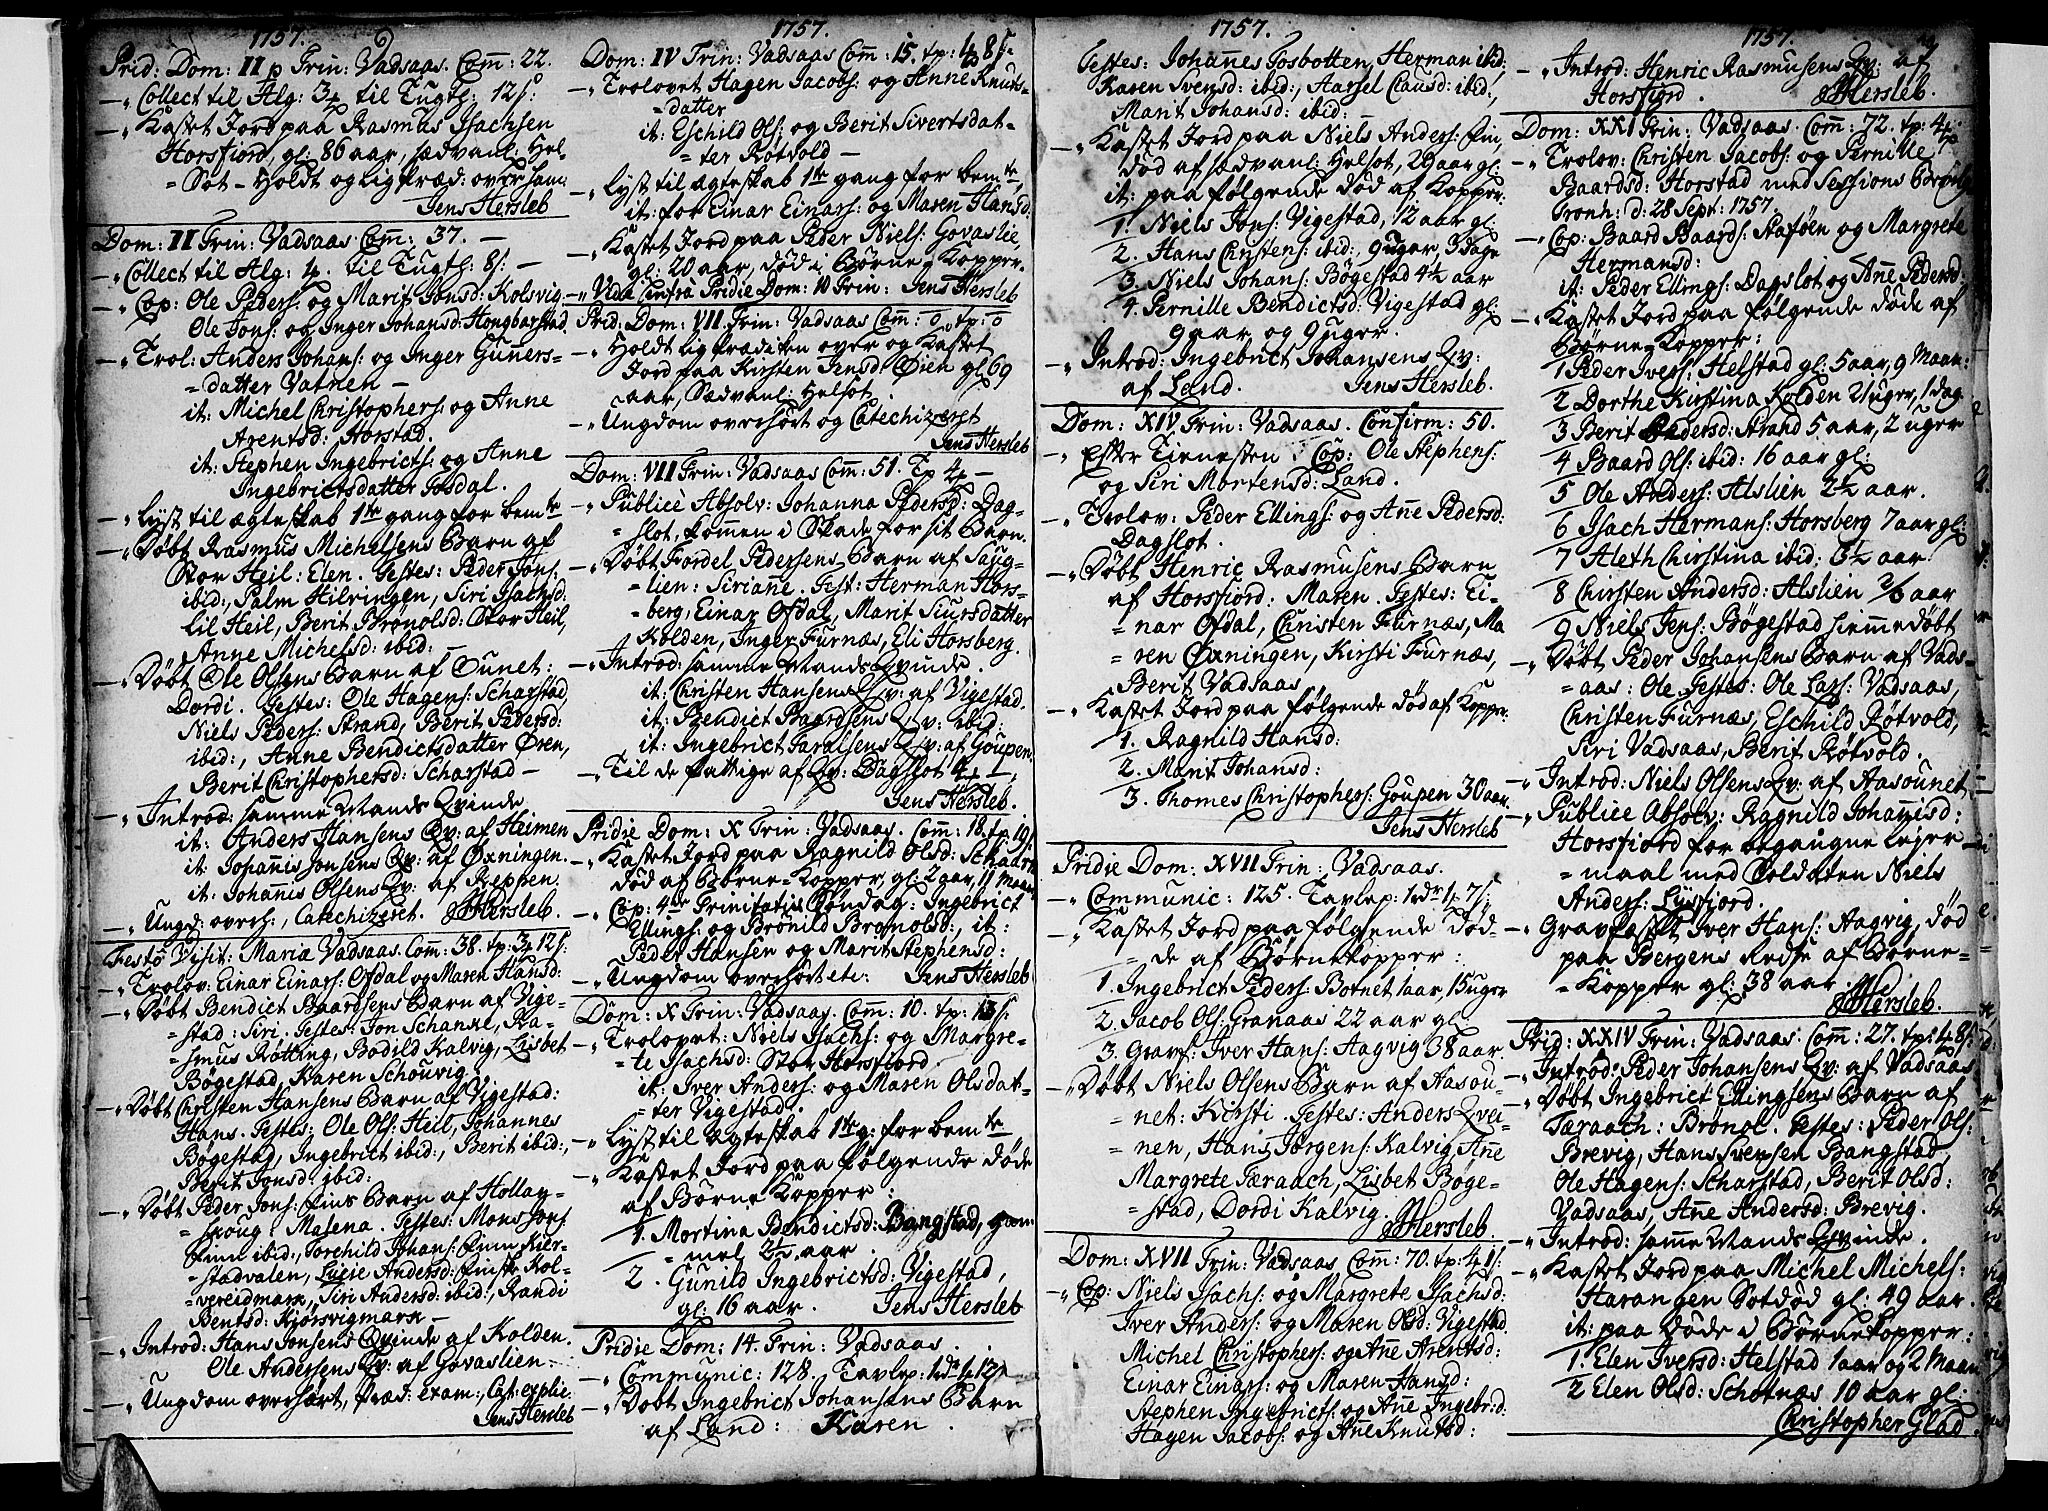 1757.
Prid: Dom: II p Trin: Vadsaas. Com̅: 22.
—„ Collect til Alg: 3 til Tugth: 12 ſ:
—„ Kastet Jord paa Rasmus Isachsen
Horsfiord, gl: 86 aar, sædvanl: Hel-
= Sot — Holdt og ligpræd: over ham
Jens Hersleb
Dom: II Trin: Vadsaas. Com̅: 37. —
—„ Collect til Alg: 4. til Tugth: 8 ſ: —
—„ Cop: Ole Peders: og Marit Jonsd: Kolsvig.
Ole Jons: og Inger Johansd: Hongbarstad
—„ Trol: Anders Johans: og Inger Guners-
= datter Vatnen —
it: Michel Christophers: og Anne
Arentsd: Horstad.
it: Stephen Ingebricts: og Anne
Ingebrictsdatter Tosdal.
—„ Lyst til ægteskab 1te gang for bemte
—„ Døbt Rasmus Michelsens Barn af
Stor Heil: Elen. Testes: Peder Jons:
ibid:, Palm Hilringen, Siri Isachsd:
Lil Heil, Berit Brønolsd: Stor Heil,
Anne Michelsd: ibid: —
—„ Døbt Ole Olsens Barn af Ounet:
Dordi. Testes: Ole Hagens: Scharstad,
Niels Peders: Strand, Berit Pedersd:
ibid:, Anne Bendictsdatter Øren,
Berit Christophersd: Scharstad —
—„ Introd: samme Mands Qvinde
it: Anders Hansens Qv: af Heimen
it: Johannis Jonsens Qv: af Oxningen.
it: Johannis Olsens Qv: af Reppen.
—„ Ungd: overh:, Catechizeret. JHersleb.
Festo Visit: Mariæ Vadsaas. Com̅: 38. tp: 3 12 ſ:
—„ Trolov: Einar Einars: Ofdal og Maren Hansd:
—„ Døbt Bendict Baardsens Barn af Vige-
= stad: Siri. Testes: Jon Schanke, Ra-
= smus Røtting, Bodild Kalvig, Lisbet
Bøgestad, Karen Schouvig.
—„ Døbt Christen Hansens Barn af Vigestad:
Hans. Testes: Ole Ols: Heil, Johannes
Bøgestad, Ingebrict ibid:, Berit ibid:,
Berit Jonsd: ibid:
—„ Døbt Peder Jons: Fins Barn af Hollan-
= skoug. Malena. Testes: Mons Jons:
Finn ibid:, Torchild Johans: Finn Kier-
= stadvalen, Lucie Andersd: Finske Kol-
= vereidmark, Siri Andersd: ibid:, Randi
Bentsd: Kjørsvigmark —
—„ Introd: Hans Jonsens Qvinde af Kolden.
Ole Andersens Qv: af Govaslien —
—„ Ungdom overhørt, præd: exam:, Cat: explic:
Jens Hersleb
1757.
Dom: IV Trin: Vadsaas Com̅: 15. tp: 4 8 ſ:
—„ Trolovet Hagen Jacobs: og Anne Knuts-
= datter
it: Eschild Ols: og Berit Sivertsdat-
= ter Røtvold —
—„ Lyst til ægteskab 1te gang for bemte
it: for Einar Einars: og Maren Hansd:
—„ Kastet Jord paa Peder Niels: Govaslie,
gl: 20 aar, død i Børne-Kopper.
—„ Vide infra Pridie Dom: IV Trin: Jens Hersleb
Prid: Dom: VII. Trin: Vadsaas Com̅: 0, tp: 0
—„ Holdt ligprædiken over og kastet
Jord paa Kirsten Jensd: Øien gl: 69
aar, Sædvanl: Helsot.
—„ Ungdom overhørt og Catechizeret
Jens Hersleb
Dom: VII Trin: Vadsaas Com̅: 51. Tp 4 —
—„ Publicè Absolv: Johanna Pedersd: Dag-
= slot, kommen i Skade for sit Barn.
—„ Døbt Fordel Pedersens Barn af Saug-
= lien: Siriane. Test: Herman Hors-
= berg, Einar Ofdal, Marit Siursdatter
Kolden, Inger Furnæs, Eli Horsberg.
—„ Introd: samme Mands Qvinde.
it: Christen Hansens Qv: af Vigestad.
it: Bendict Baardsens Qv: ibid:
it: Ingebrict Taralsens Qv: af Goupen
—„ Til de fattige af Qv: Dagslot 4 —,
Jens Hersleb.
Pridie Dom: X Trin: Vadsaas. Com̅: 18. tp. 19 ſ:
—„ Kastet Jord paa Ragnild Olsd: Schaarn
død af Børne-Kopper, gl: 2 aar, 11 Maan
—„ Cop: 4de Trinitatis Søndag: Ingebrict
Ellings: og Brønild Brønolsd:, it:
Peder Hansen og Marit Stephensd:
—„ Ungdom overhørt etc: Jens Hersleb
Dom: X Trin: Vadsaas. Com̅: 10. tp: 13 ſ:
—„ Trolovet: Niels Isachs: og Margre-
= te Isachsd: Stor Horsfiord
it: Iver Anders: og Maren Olsdat-
= ter Vigestad.
—„ Lyst til ægteskab 1te g: for bemte
—„ Kastet Jord paa følgende døde
af Børne Kopper:
1. Mortina Bendictsd: Bangstad, gam-
= mel 2½ aar.
2. Gunild Ingebrictsd: Vigestad,
gl: 16 aar. Jens Hersleb
Pridie Dom: 14. Trin: Vadsaas.
—„ Communic: 128. Tavlep: 1 dr 4 12 ſ
—„ Døbt Ingebrict Johansens Barn
af Land: Karen.
1757.
Testes: Johannes Tosbotten, Herman ibid:
Karen Svensd: ibid:, Aassel Clausd: ibid:,
Marit Johansd: ibid: —
—„ Kastet Jord paa Niels Anders: Fin,
død af sædvanl: Helsot, 29 aar gl:
it: paa følgende død af Kopper.
1. Niels Jons: Vigestad, 12 aar gl:
2. Hans Christens: ibid: 9 uger, 3 dage
3. Niels Johans: Bøgestad 4½ aar
4. Pernille Bendictsd: Vigestad gl:
9 aar og 9 uger.
—„ Introd: Ingebrict Johansens Qv:
af Land. Jens Hersleb.
Dom: XIV Trin: Vadsaas. Confirm: 50.
—„ Efter Tienesten Cop: Ole Stephens:
og Siri Mortensd: Land.
—„ Trolov: Peder Ellings: og Anne Pedersd:
Dagslot.
—„ Døbt Henric Rasmusens Barn
af Horsfiord: Maren. Testes: Ei-
= nar Ofdal, Christen Furnæs, Ma
= ren Oxningen, Kirsti Furnæs,
Berit Vadsaas
—„ Kastet Jord paa følgende død af Kopper
1. Ragnild Hansd:
2. Marit Johansd:
3. Thomes Christophers: Goupen 30 aar.
Jens Hersleb
Pridie Dom: XVII Trin: Vadsaas.
—„ Communic: 125. Tavlep: 1 dr 1, 7 ſ:
—„ Kastet Jord paa følgende Død-
= de af Børnekopper:
1. Ingebrict Peders: Botnet 1 aar, 15 uger
2. Jacob Ols: Granaas 22 aar gl:
3. Gravf: Iver Hans: Aagvig 38 aar.
—„ Døbt Niels Olsens Barn af Aasou-
= net: Kirsti. Testes: Anders Qvei-
= nen, Hans Jørgens: Kalvig, Anne
Margrete Tæraach, Lisbet Bøge-
= stad, Dordi Kalvig. JHersleb.
Dom: XVII Trin: Vadsaas Com̅: 70. tp: 4 1 ſ:
—„ Cop: Niels Isachs: og Margrete Isachsd:
Iver Anders: og Maren Olsd: Vigestad
Michel Christophers: og Anne Arentsd:
Einar Einars: og Maren Hansd:
Stephen Ingebricts: og Anne Ingebr:d:
Hagen Jacobs: og Anne Knutsd:
1757.
—„ Introd: Henric Rasmusens Qv: af
Horsfiord. JHersleb.
Dom: XXI Trin: Vadsaas. Com̅: 72. tp: 4
—„ Trolov: Christen Jacobs: og Pernille
Baardsd: Horstad med Sessions Brev
Tronh: d: 28 Sept: 1757.
—„ Cop: Baard Baards: Aaføen og Margrete
Hermansd:
it: Peder Ellings: Dagslot og Anne Pedersd:
—„ Kastet Jord paa følgende døde af
Børne-Kopper:
1 Peder Ivers: Helstad gl: 5 aar, 9 Maan:
2 Dorthe Kirstina Kolden 21 uger, 1 dag
3 Berit Pedersd: Strand 5 aar, 2 uger
4 Baard Ols: ibid: 16 aar gl:
5 Ole Anders: Alslien 2½ aar.
6 Isach Hermans: Horsberg 7 aar gl:
7 Aleth Chirstina ibid: 5½ aar.
8 Chirsten Andersd: Alslien aar
9 Niels Jens: Bøgestad hiemmedøbt
—„ Døbt Peder Johansens Barn af Vads-
= aas: Ole. Testes: Ole Lars: Vadsaas,
Christen Furnæs, Eschild Røtvold,
Siri Vadsaas, Berit Røtvold.
—„ Introd: Niels Olsens Qv: af Aasounet
—„ Publice Absolv: Ragnild Johannisd:
Horsfiord for begangne lejer-
= maal med Soldaten Niels
Anders: Lysfjord.
—„ Gravfæstet Iver Hans: Aagvig, død
paa Bergens Reise af Børne-
= Kopper gl: 38 aar.
JHersleb.
Prid: XXIV Trin: Vadsaas. Com̅: 27. tp: 4 8 ſ:
—„ Introd: Peder Johansens Qv: af Vadsaas
—„ Døbt Ingebrict Ellingsens Barn af
Tæraach: Brønol. Testes: Peder Ols:
Brevig, Hans Svensen Bangstad,
Ole Hagens: Scharstad, Berit Olsd:
Vadsaas, Anne Andersd: Brevig.
—„ Introd: samme Mands Qvinde.
—„ Kastet Jord paa Michel Michels:
Harangen Sotdød gl: 49 aar.
it: paa Døde i Børnekopper:
1. Elen Iversd: Helstad 1 aar og 2 Maan
2 Elen Olsd: Schotnæs 10 aar gl:
Christopher Glad